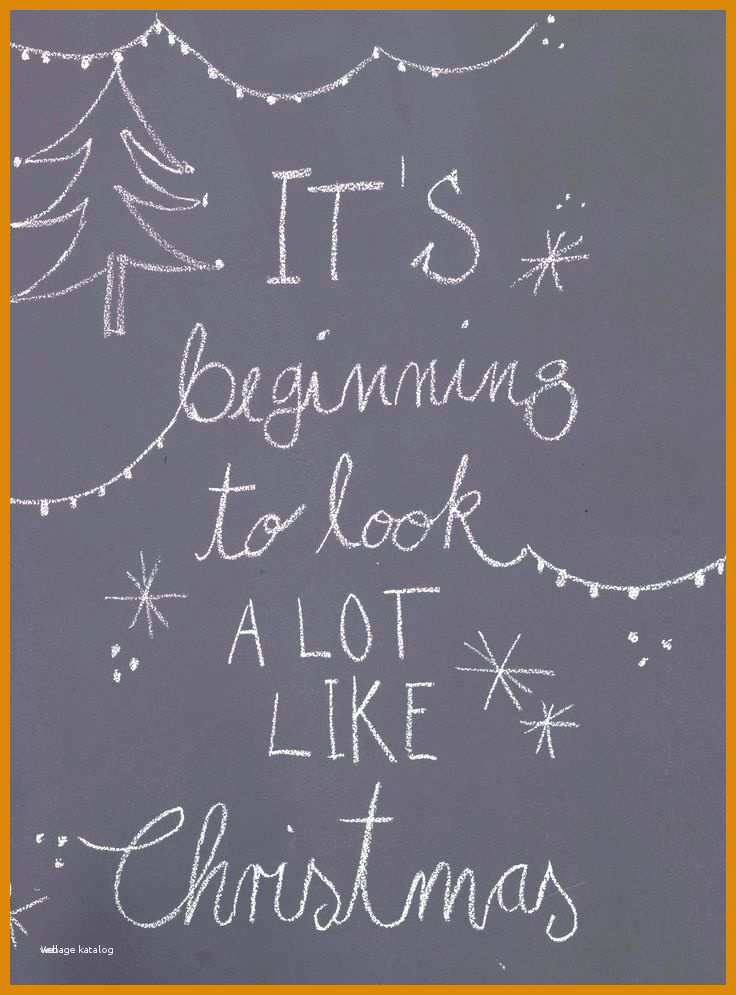 IT'S
beginning
to look
A LOT
LIKE
Christmas
katalog